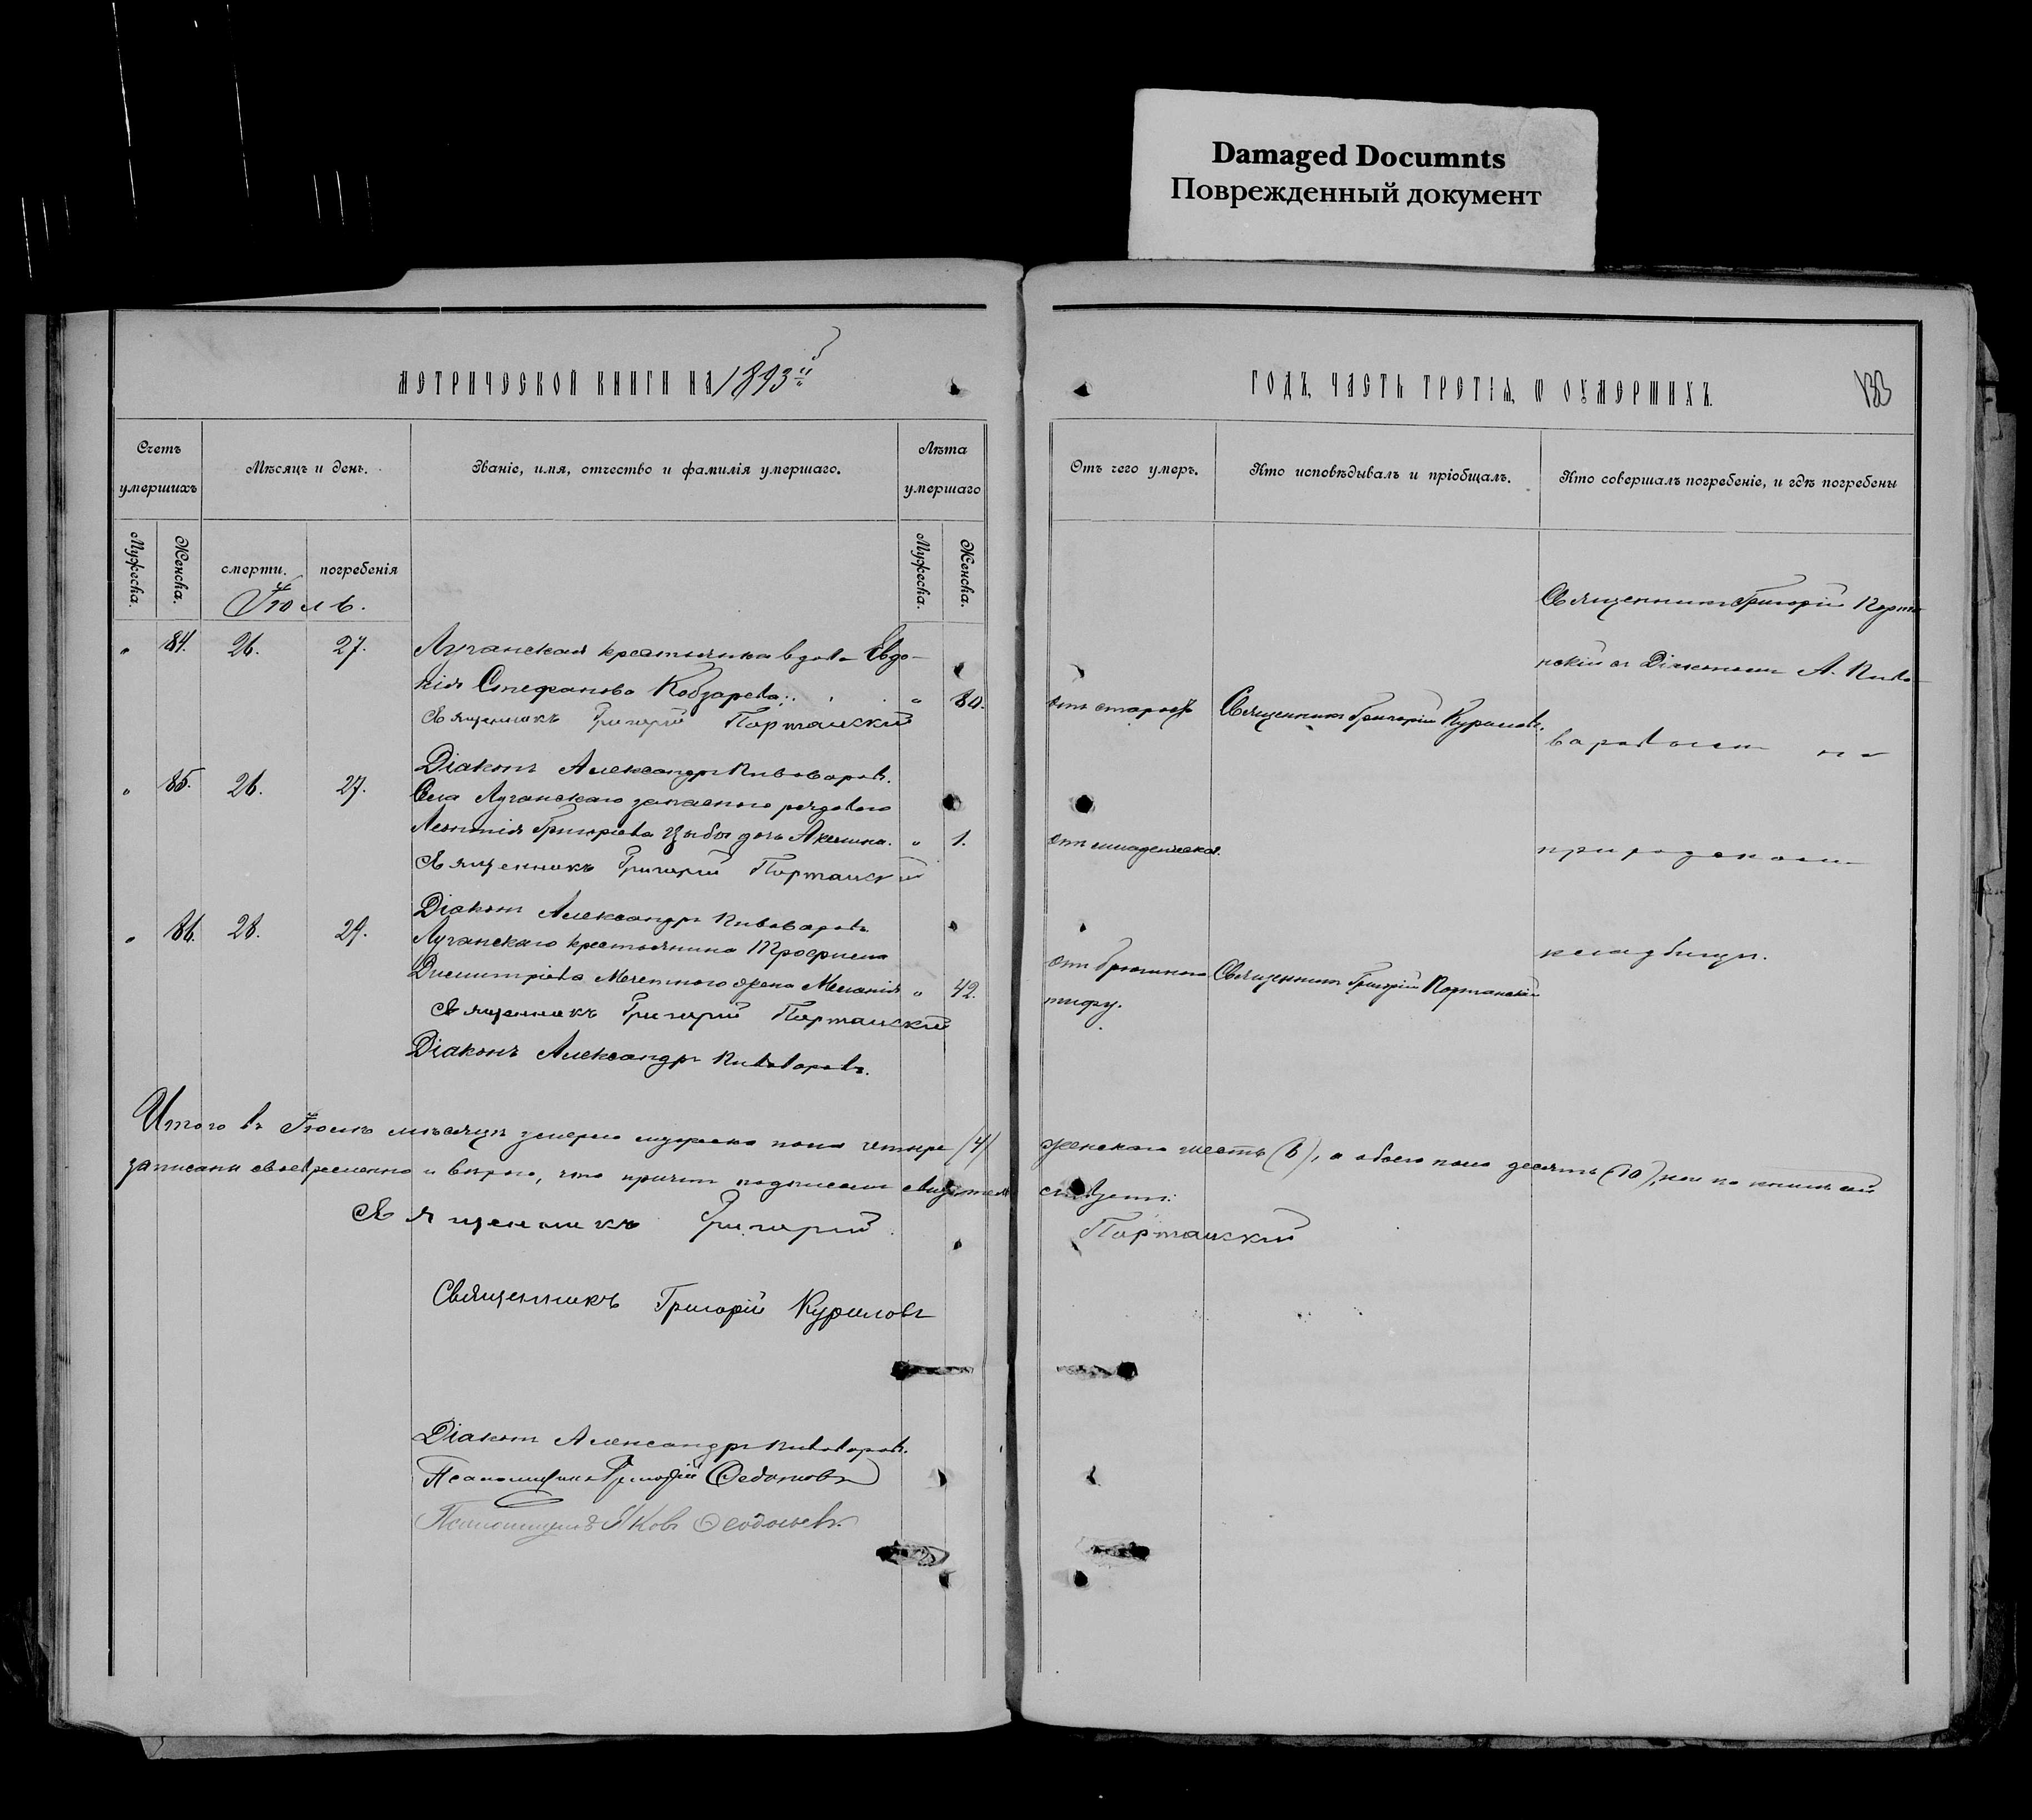 Damaged Documnts
Поврежденный документ
МЕТРИЧЕСКОЙ КНИГИ НА 1893й
ГОДЪ, ЧАСТЬ ТРЕТІЯ, Ѡ ОУМЕРШИХЪ.
133
Счетъ умершихъ
Мѣсяцъ и день.
Званіе, имя, отчество и фамилія умершаго.
Лѣта умершаго
Отъ чего умеръ.
Кто исповѣдывалъ и пріобщалъ.
Кто совершалъ погребеніе, и гдѣ погребены
Мужеска.
Женска.
смерти.
погребенія
Мужеска.
Женска.
Іюль.
" 84. 26. 27. Луганская крестьянка вдова Евдо-
кія Стефанова Кобзарева " 80.
Священникъ Григорій Портанскій
Діаконъ Александръ Пивоваровъ.
" 85. 26. 27. Села Луганскаго запаснаго рядового
Леонтія Григоріева Цыбы дочь Акилина. " 1.
Священникъ Григорій Портанскій
Діаконъ Александръ Пивоваровъ
" 86. 28. 29. Луганскаго крестьянина Трофима
Димитріева Мечетного жена Меланія " 42.
Священникъ Григорій Портанскій
Діаконъ Александръ Пивоваровъ.
отъ старости
Священникъ Григорій Куриловъ.
отъ младенческой.
отъ брюшного
тифу.
Священникъ Григорій Портанскій
Священникъ Григорій Порта-
нскій съ Діакономъ А. Пиво-
варовымъ на
приходскомъ
кладбищѣ.
Итого въ Іюлѣ мѣсяцѣ умерло мужеска пола четыре (4) женскаго шесть (6), а обоего пола десять (10),
записаны своевременно и вѣрно, что причтъ подписомъ свидѣтельствуетъ:
Священникъ Григорій Портанскій
Священникъ Григорій Куриловъ
Діаконъ Александръ Пивоваровъ.
Псаломщикъ Григорій
Псаломщикъ Яковъ